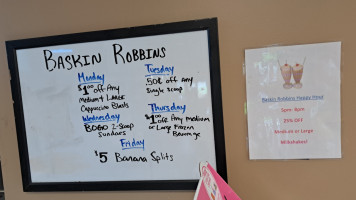 BASKIN ROBBINS
Monday
$1.00 off Any
Medium & Large
Cappuccino Blasts
Tuesday
50% off Any
Single Scoop
Wednesday
BOGO 2-Scoop
Sundaes
Thursday
$1.00 off Any Medium
or Large Frozen
Beverage
Friday
$5 Banana Splits
Baskin Robbins Happy Hour
25% OFF
Medium or Large
Milkshakes!